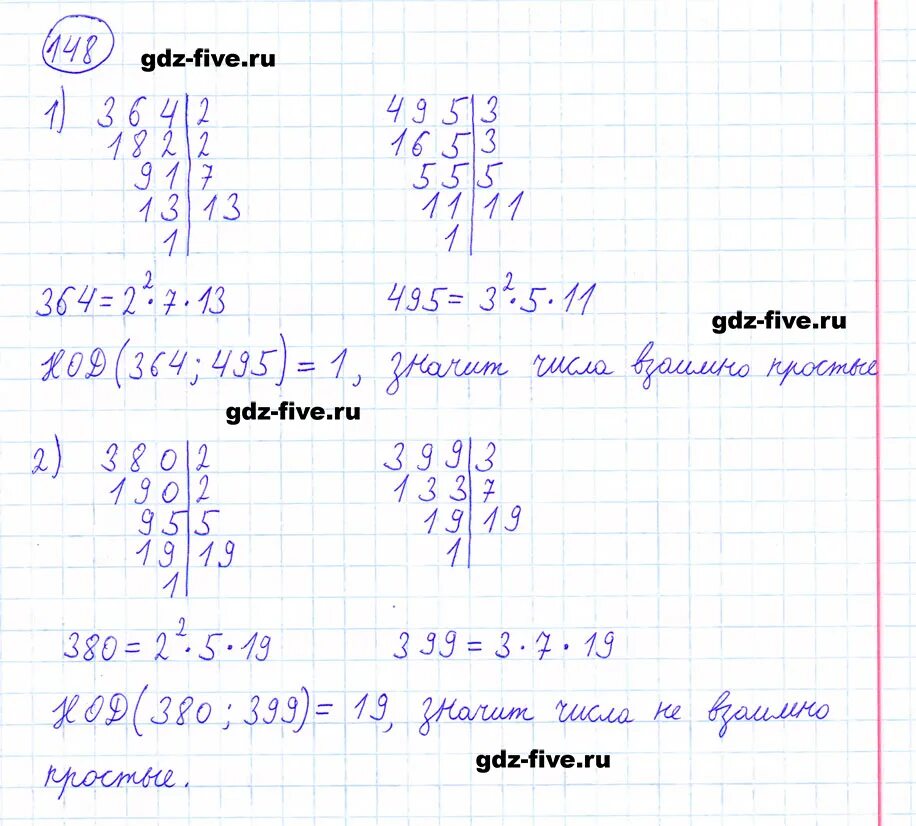 148
gdz-five.ru
1) 364|2 495|3
182|2 165|3
91|7 55|5
13|13 11|11
1| 1|
364=2²·7·13 495=3²·5·11
gdz-five.ru
НОД(364;495)=1, значит числа взаимно простые
gdz-five.ru
2) 380|2 399|3
190|2 133|7
95|5 19|19
19|19 1|
1|
380=2²·5·19 399=3·7·19
НОД(380;399)=19, значит числа не взаимно
gdz-five.ru
простые.